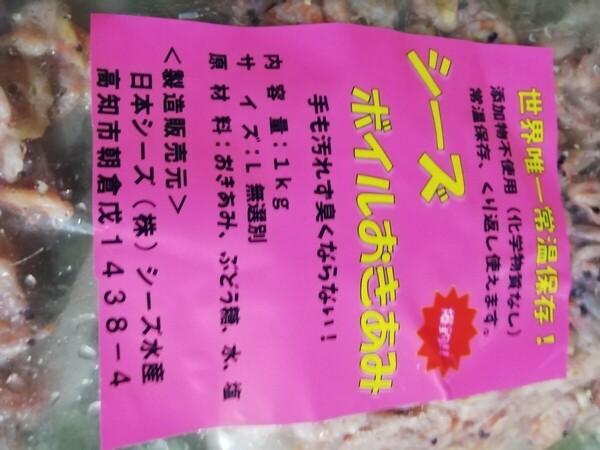 世界唯一常温保存！
添加物不使用（化学物質なし）
常温保存、くり返し使えます。
シーズ
ボイルおきあみ
手も汚れず臭くならない！
内容量：1kg
サイズ：L 無選別
原材料：おきあみ、ぶどう糖、水、塩
＜製造販売元＞
日本シーズ（株）シーズ水産
高知市朝倉戊1438-4